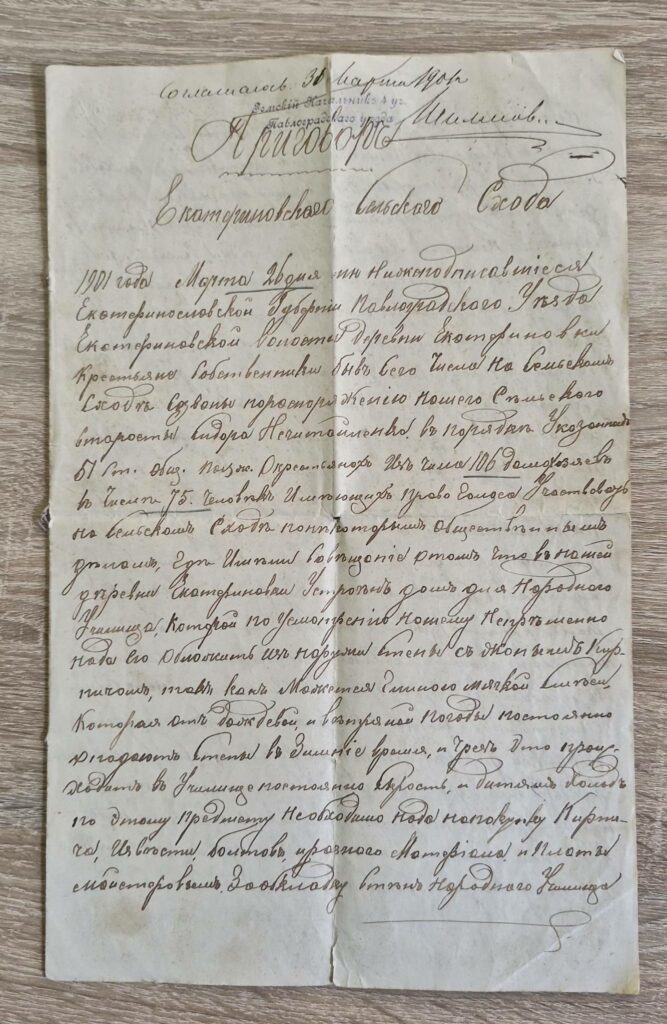 Соглашаюсь. 30 Марта 1901 г
Земскій Начальникъ 4 уч.
Павлоградскаго уѣзда
Приговоръ
Екатериновского Сельского Схода
1901 года Марта 26 дня мы нижеподписавшіеся
Екатеринославской Губерніи Павлоградского Уѣзда
Екатериновской волости деревни Екатериновки
Крестьяне Собственники бывъ сего числа на Сельскомъ
Сходѣ созваны по распоряженію нашего Сельского
старосты Сидора Нечитайленко, въ порядкѣ Указанномъ
51 ст. общ. полож. о крестьянахъ изъ числа 106 домохозяевъ
въ числѣ 75. Человѣкъ Имѣющихъ право Голоса Участвовать
на Сельскомъ Сходѣ по некоторымъ Общественнымъ
дѣламъ, Гдѣ Имѣли Совѣщаніе о томъ что въ нашей
деревни Екатериновки Устроенъ домъ для Народного
Училища, Которой по Усмотренію нашему Непрѣменно
нада Его Обложить изъ наружи стены съ жонымъ Кир-
пичомъ, такъ какъ Мажется Глиною мягкой
Которая отъ Дождевой, и вѣтряной погоды постоянно
стены въ Зимніе время, и Чрезъ Это проис-
ходитъ въ Училище постоянно сырость, и дитямъ Холодъ
по Этому предмету Необходимо нада на покупку Кирпи-
ча, Извѣсти, болтовъ, и разного Матеріала, и Плата
мастеровымъ, За обкладку стенъ Народного Училища